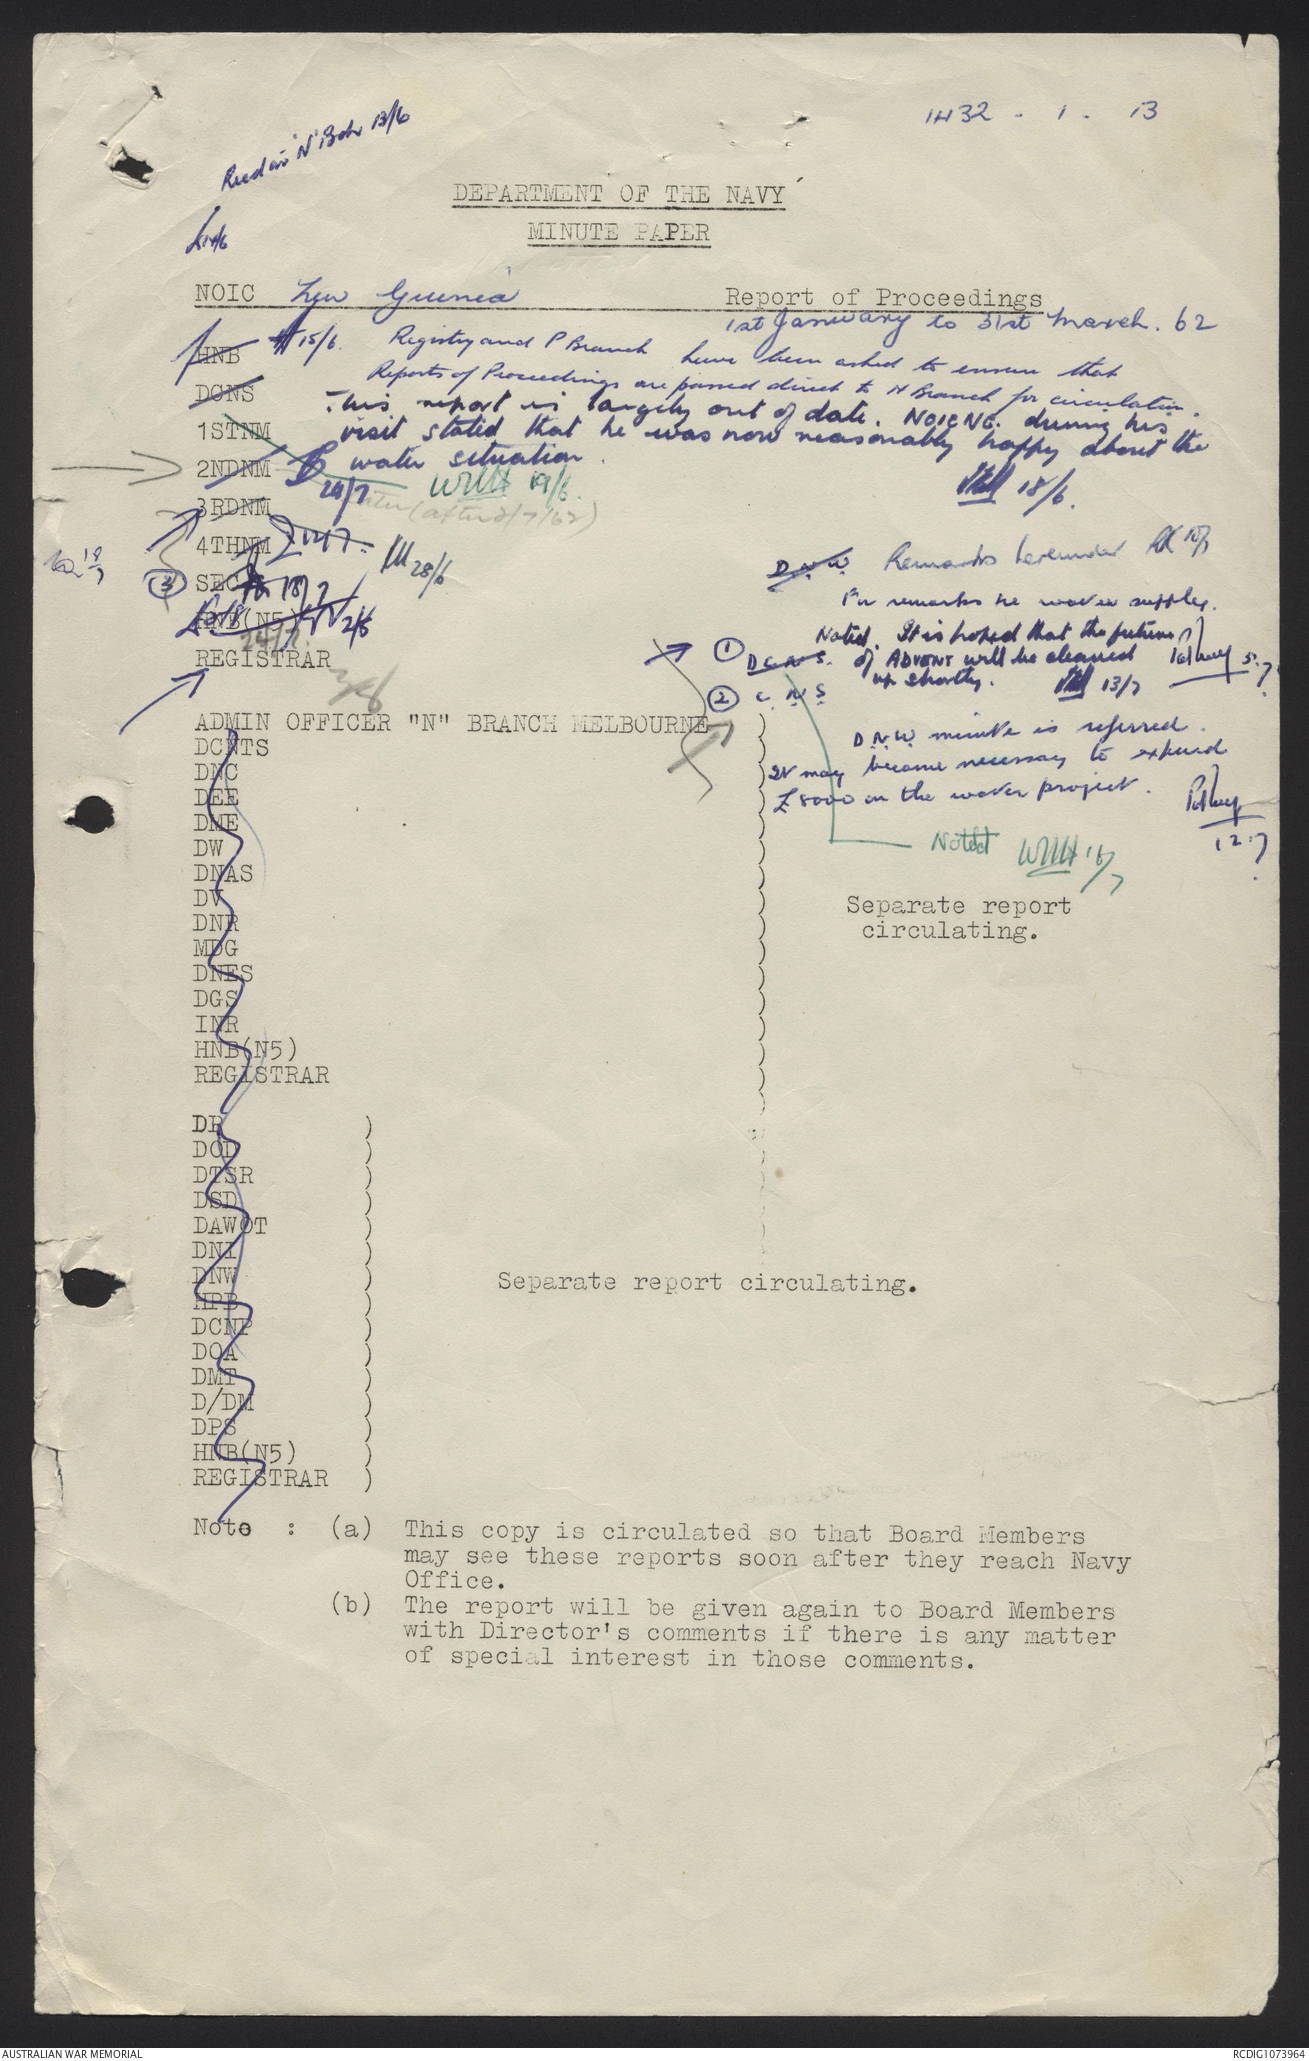 1432 - 1 . 13
Recd in 'N' Bch 13/6
14/6
DEPARTMENT OF THE NAVY
MINUTE PAPER
NOIC New Guinea
Report of Proceedings
1st January to 31st March. 62
HNB 15/6. Registry and P Branch have been asked to ensure that
Reports of Proceedings are passed direct to N Branch for circulation.
DCNS
This report is largely out of date. NOICNG. during his
1STNM visit stated that he was now reasonably happy about the
2NDNM water situation.
24/7 WMH 19/6.
18/6.
3RDNM
(after 2/7/62)
4THNM
28/6
③ SEC 18/7
HNB(N5) 2/8
24/7
REGISTRAR
D.N.W. Remarks hereunder
For remarks re water supply.
① D.C.N.S. Noted. It is hoped that the future
of ADVENT will be cleared
up shortly. 13/7
5.7
② C.N.S
D.N.W minute is referred.
It may become necessary to expend
£8000 on the water project.
12.7
Noted WMH 16/7
ADMIN OFFICER "N" BRANCH MELBOURNE )
DCNTS
DNC
DEE
DME
DW
DNAS
DV
DNR
MDG
DNES
DGS
INR
HNB(N5)
REGISTRAR
Separate report
circulating.
DR )
DOD )
DTSR )
DSD )
DAWOT )
DNI )
DNW )
HPB )
DCNP )
DOA )
DMT )
D/DM )
DPS )
HNB(N5) )
REGISTRAR )
Separate report circulating.
Note : (a) This copy is circulated so that Board Members
may see these reports soon after they reach Navy
Office.
(b) The report will be given again to Board Members
with Director's comments if there is any matter
of special interest in those comments.
AUSTRALIAN WAR MEMORIAL
RCDIG1073964